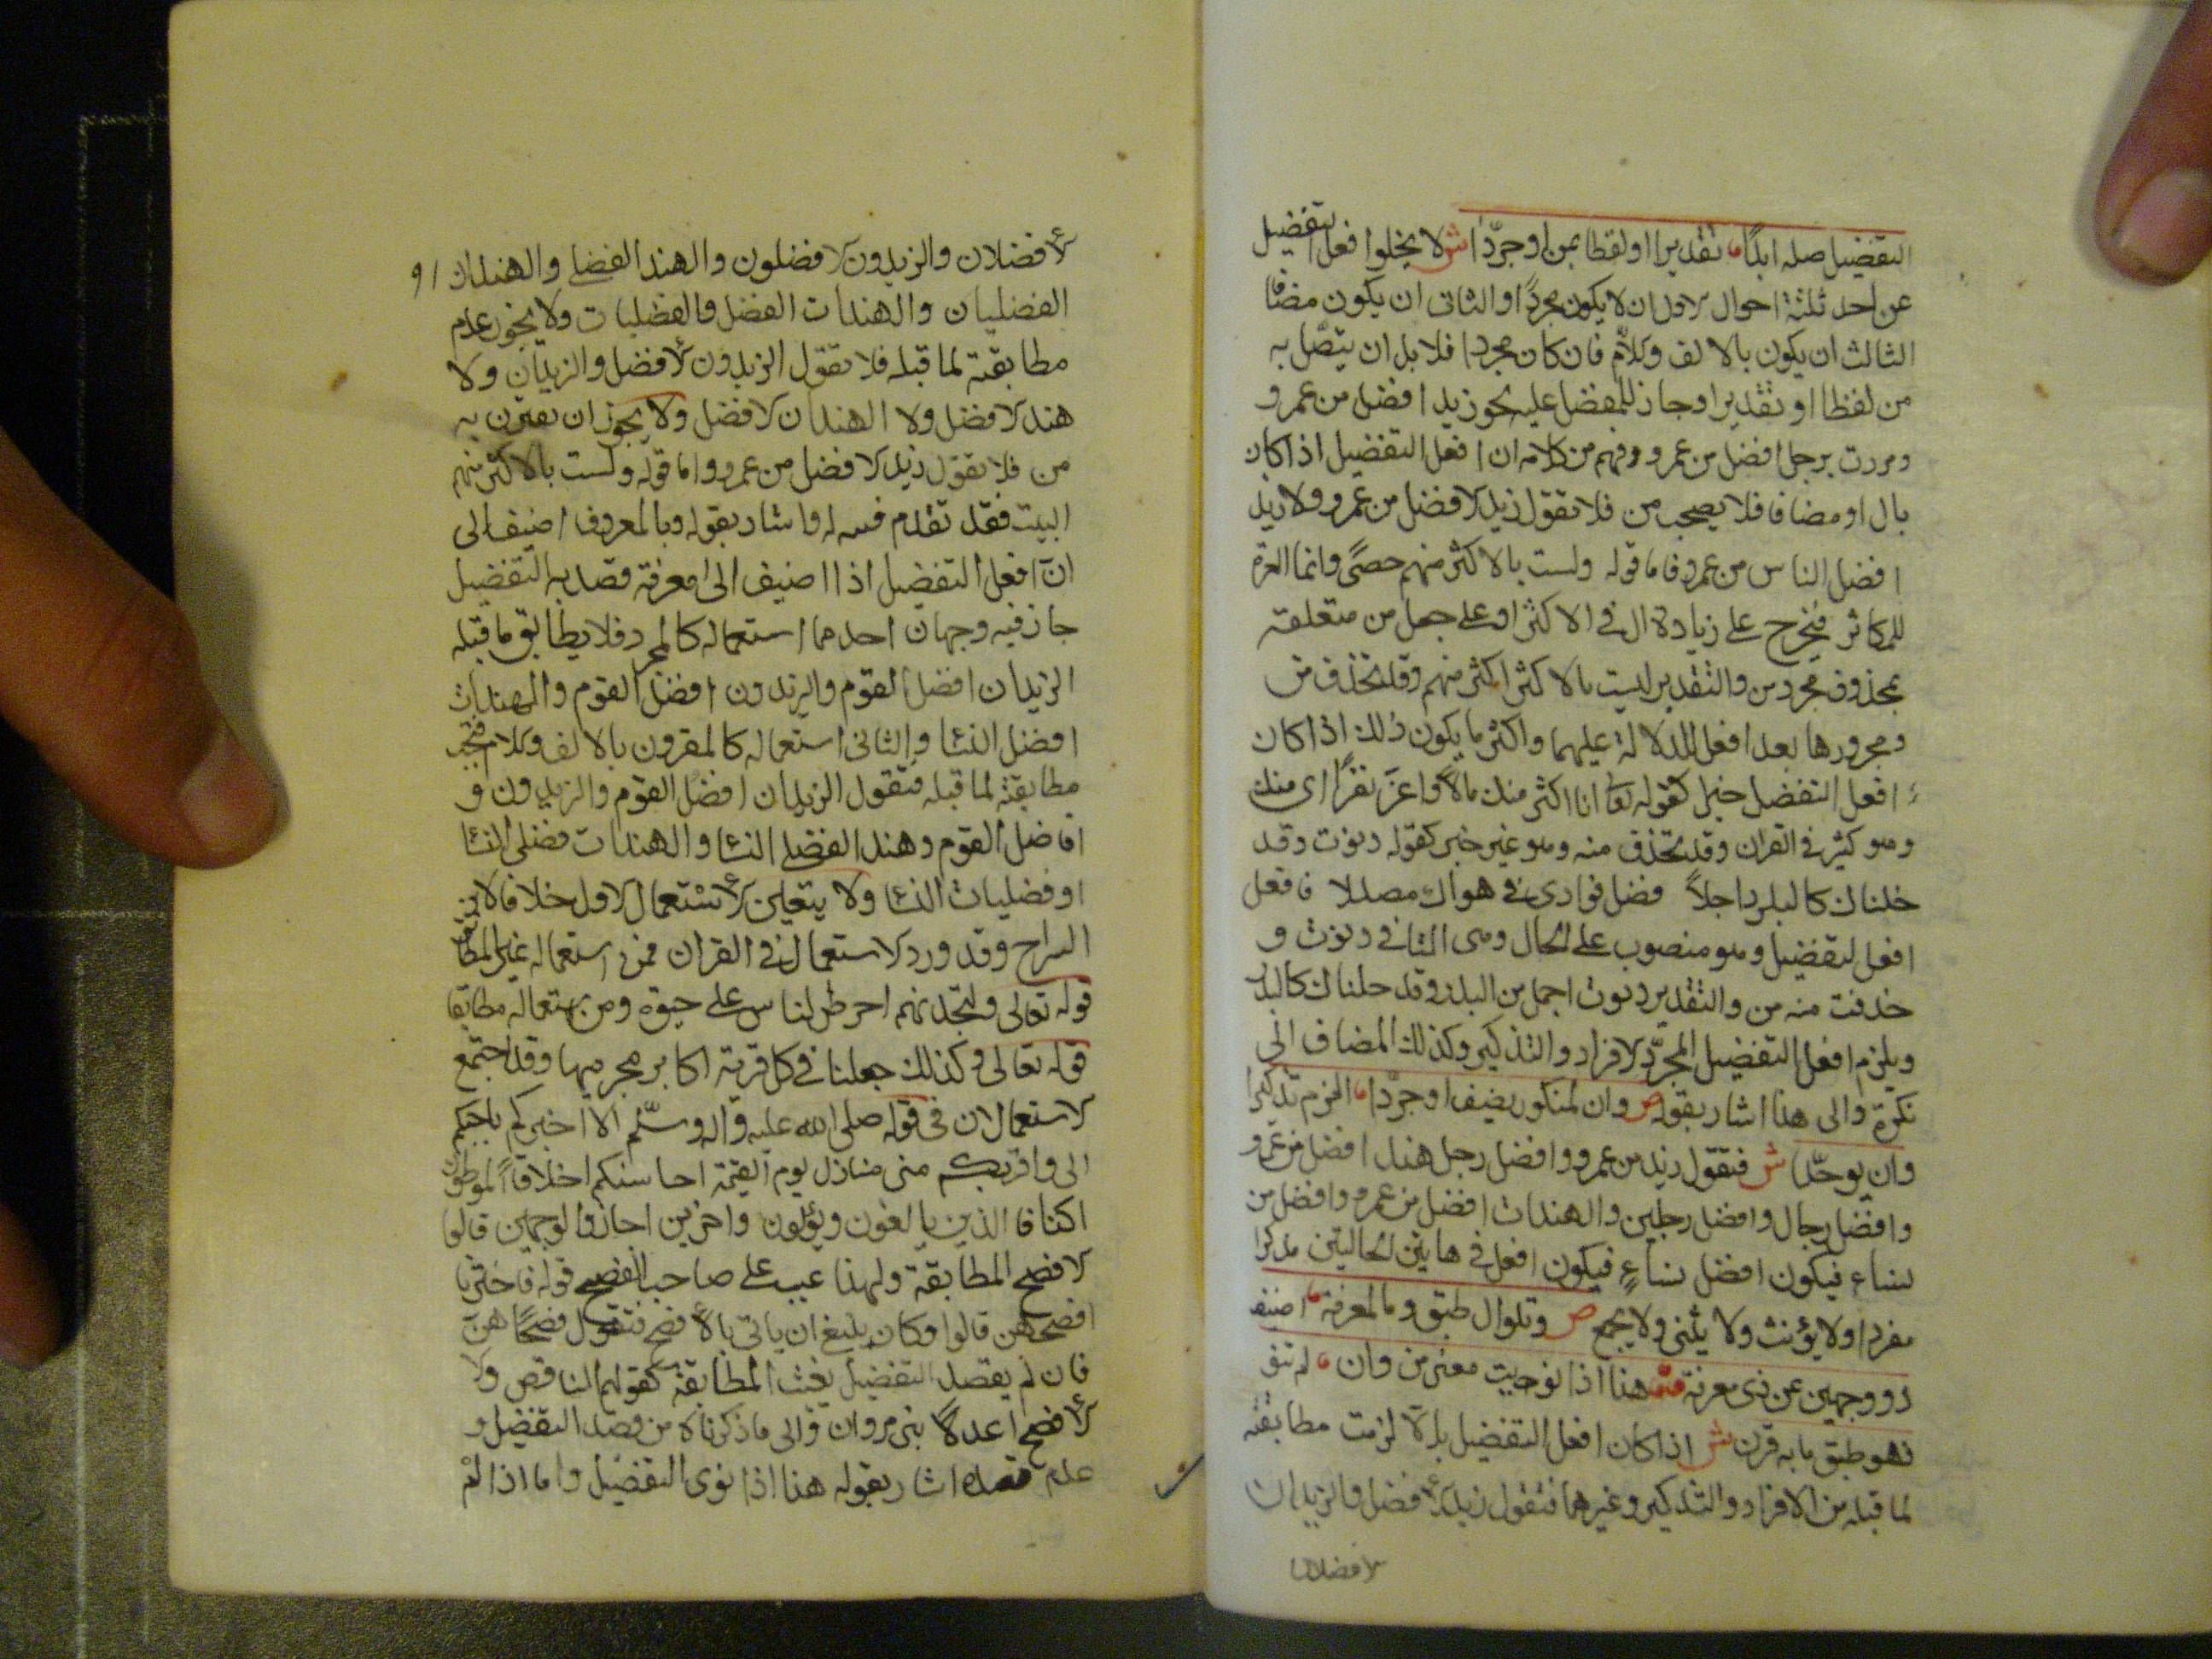 التفضيل صله ابدًا تقديرا او لفظا بمن ان جرّدا ش لا يخلوا فعل التفضيل
عن احد ثلثة احوال لاول ان لا يكون مجردًا والثانى ان يكون مضافا
الثالث ان يكون بالالف وللام فان كان مجردا فلا بد ان يتصل به
من لفظا او تقديرا وجاز للمفضل عليه نحو زيد افضل من عمرو
ومررت برجل افضل من عمرو وفهم من كلامه ان افعل التفضيل اذا كان
بال او مضافا فلا يصحب من فلا تقول زيد لافضل من عمرو ولا زيد
افضل الناس من عمرو فاما قوله ولست بالاكثر منهم حصًى وانما العزة
للكاثر فيخرج على زيادة ال في الاكثر او على جعل من متعلقة
بمحذوف مجرد من والتقدير ليست بالاكثر اكثر منهم وقد تحذف من
ومجرورها بعد افعل للدلالة عليهما واكثر ما يكون ذلك اذا كان
افعل التفضل خبرا كقوله تعا انا اكثر منك مالًا واعزّ نفرًا اى منك
وهو كثير في القران وقد تحذف منه وهو غير خبر كقوله دنوت وقد
خلناك كالبدر اجملاً فضل فوادى في هواك مضللا فافعل
افعل لتفضيل وهو منصوب على الحال وهى التا في دنوت و
حذفت منه من والتقدير دنوت اجمل من البدر وقد خلناك كالبدر
ويلزم افعل التفضيل المجرّد لافراد والتذكير وكذلك المضاف الى
نكرة والى هذا اشار بقوله ص وان لمنكور يضف او جرّدا الزم تذكيرا
وان يوحّدا ش فتقول زيد من عمرو وافضل رجل هند افضل من عمرو
وافضل رجال وافضل رجلين والهندات افضل من عمرو وافضل من
نساء فيكون افضل نساءٍ فيكون افعل في هاتين لحالتين مذكرا
مفردا ولا يؤنث ولا يثنى ولا يجمع ص وتلو ال طبق وما لمعرفة اضيف
ذو وجهين عن ذى معرفة هذا اذا نويت معنى من وان لم تنو
فهو طبق ما به قرن ش اذا كان افعل التفضيل بال لزمت مطابقته
لما قبله من الافراد والتذكير وغيرهما فتقول زيد لأفضل والزيدان
لافضلان
لأفضلان والزيدون لافضلون والهند الفضلى والهندان
الفضليان والهندات الفضل والفضليات ولا يجوز عدم
مطابقته لما قبله فلا تقول الزيدون لأفضل والزيدان ولا
هند لافضل ولا الهندان لافضل ولا يجوز ان يقترن به
من فلا تقول زيد لافضل من عمرو واما قوله ولست بالاكثر منهم
البيت فقد تقدم فيه له واشار بقوله وبالمعروف اضيف الى
انّ افعل التفضيل اذا اضيف الى معرفة قصد به التفضيل
جاز فيه وجهان احدهما استعماله كالمجرد فلا يطابق ما قبله
الزيدان افضل القوم والزيدون افضل القوم والهندات
افضل النسا والثانى استعماله كالمقرون بالالف وللام فتجب
مطابقته لما قبله فتقول الزيدان افضل القوم والزيدون و
افاضل القوم وهند الفضلى النسا والهندات فضلى النسا
او فضليات النسا ولا يتعين لأستعمال لاول خلافا لابن
السراج وقد ورد لاستعمالان في القران فمن استعماله غير المطابق
قوله تعالى ولتجدنهم احرص لناس على حيوة ومن استعماله مطابقا
قوله تعالى وكذلك جعلنا في كل قرية اكابر مجرميها وقد اجتمع
لاستعمالان فى قوله صلى الله عليه واله وسلّم الا اخبركم باحبكم
الى واقربكم منى منازل يوم القيمة احاسنكم اخلاقاً الموطؤن
اكنافا الذين يالفون ويؤلفون واخرين اجازوا لوجهين قالوا
لافصح المطابقة ولهذا عيب على صاحب الفصيح قوله فاخترنا
افصحهن قالوا وكان ينبغ ان ياتى بالأفصح فتقول فصحاهن
فان لم يقصد التفضيل تعينت المطابقة كقولهم الناقص ولا
لأفصح اعدلا بنى مروان والى ما ذكرناه من قصد التفضيل و
عدم قصده اشار بقوله هذا اذا نوى التفضيل واما اذا لم